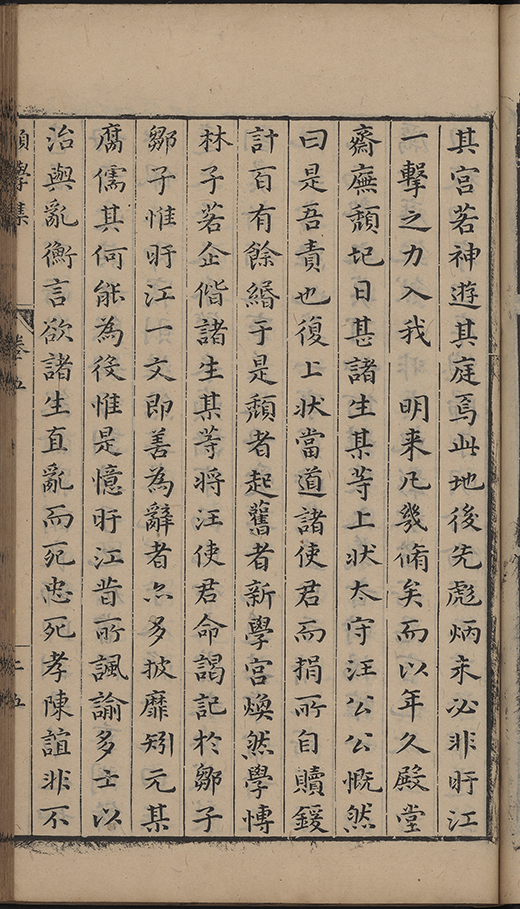 其宮若神遊其庭焉此地後先彪炳未必非盱江
一擊之力入我　明来凡幾脩矣而以年久殿堂
齋廡頹圮日甚諸生某等上狀太守汪公公慨然
曰是吾責也復上狀當道諸使君而捐所自贖鍰
計百有餘緡于是頹者起舊者新學宮煥然學愽
林子若企偕諸生某等将汪使君命謁記於鄒子
鄒子惟盱江一文即善為辭者亦多披靡矧元某
腐儒其何能為役惟是憶盱江昔所諷諭多士以
治與亂衡言欲諸生直亂而死忠死孝陳誼非不
願學集
卷五
二五